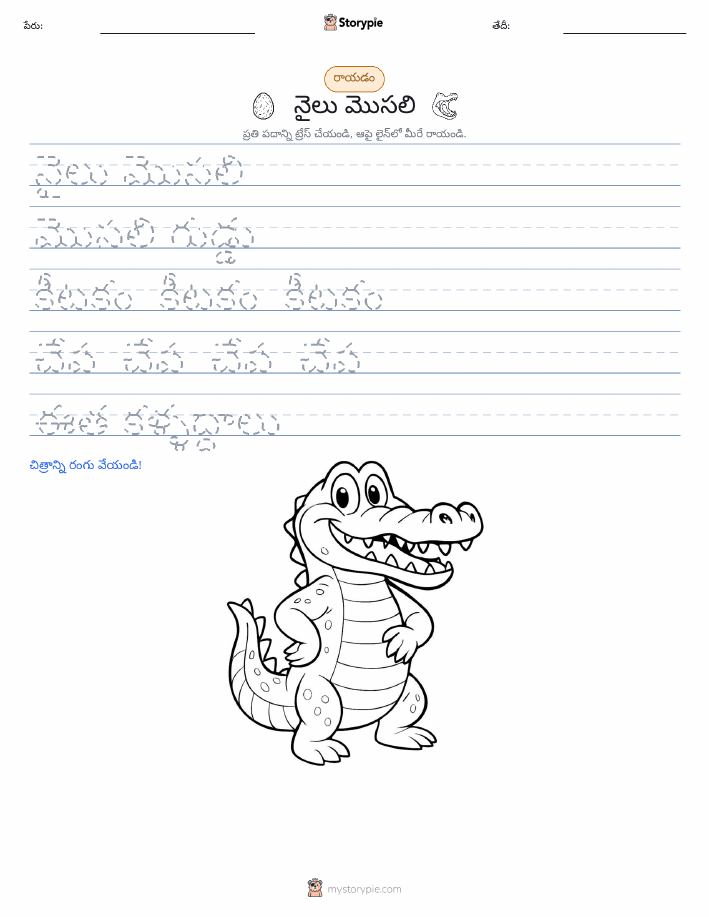 పేరు:
Storypie
తేదీ:
రాయడం
నైలు మొసలి
ప్రతి పదాన్ని ట్రేస్ చేయండి, ఆపై లైన్‌లో మీరే రాయండి.
నైలు మొసలి
మొసలి గుడ్డు
కీటకం కీటకం కీటకం
చేప చేప చేప చేప
ఈత కళ్ళద్దాలు
చిత్రాన్ని రంగు వేయండి!
mystorypie.com